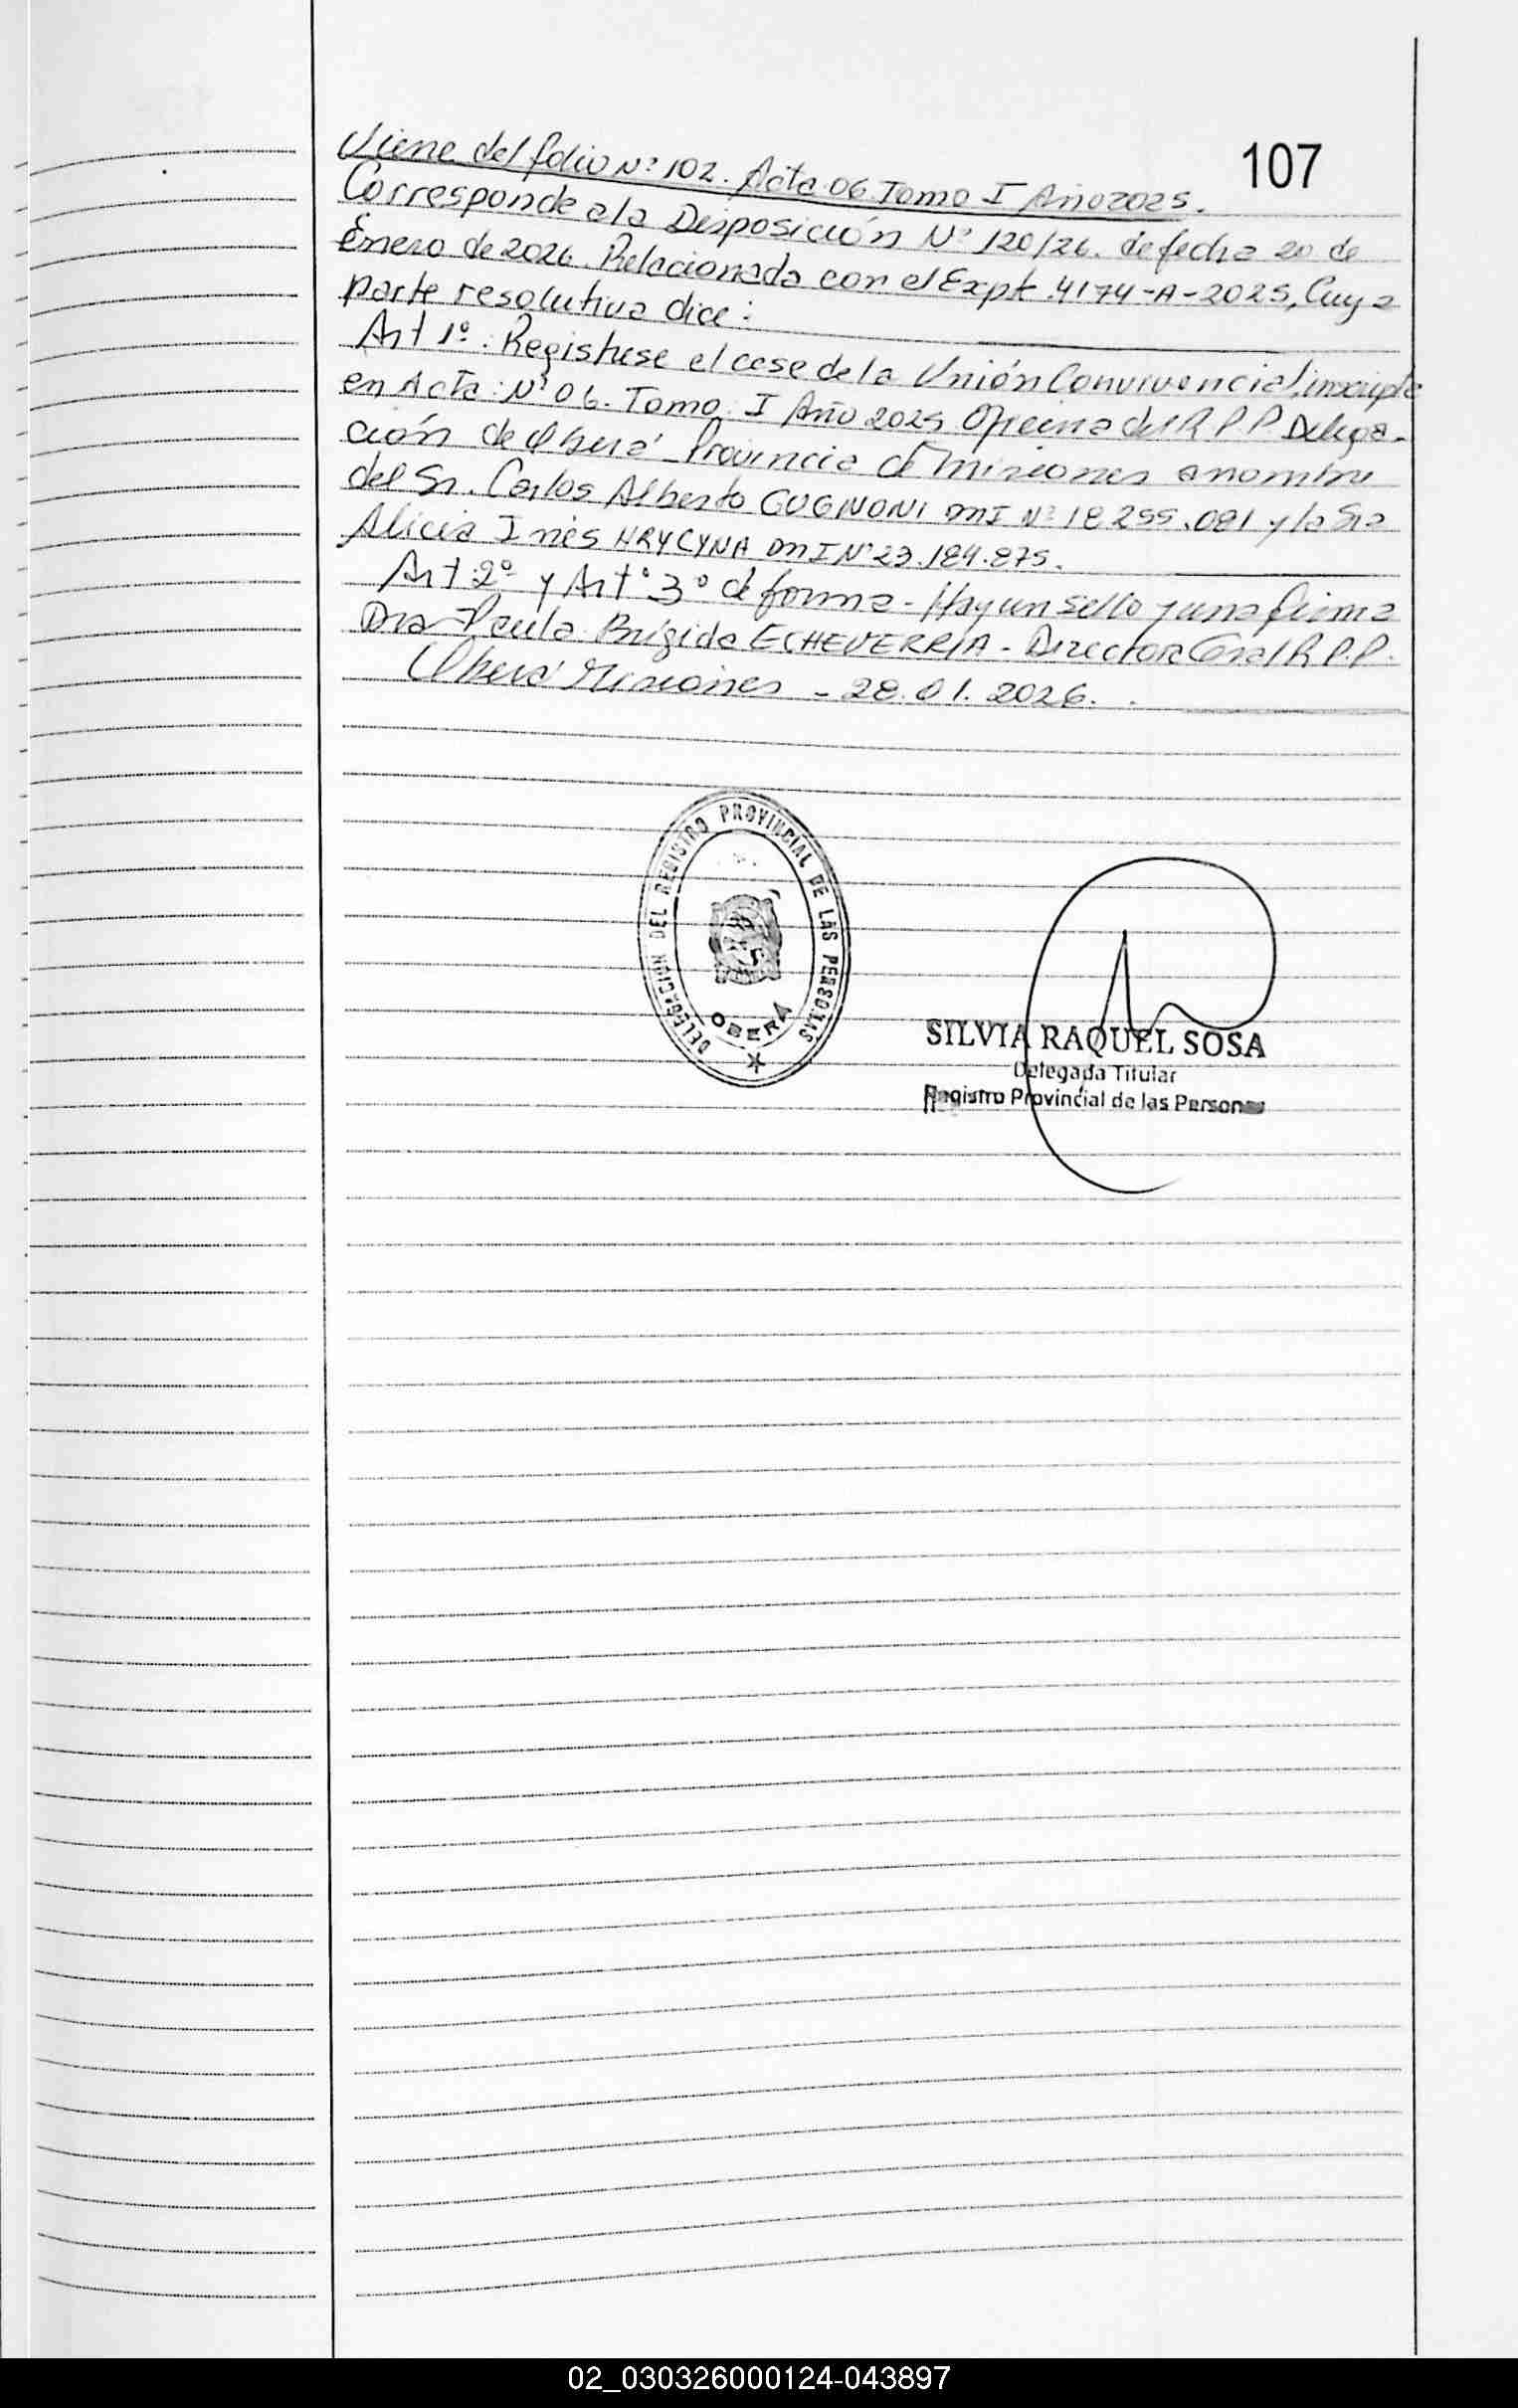 107
Viene del folio Nº 102. Acta 06. Tomo I Año 2025.
Corresponde a la Disposición Nº 120/26. de fecha 20 de
Enero de 2026. Relacionada con el Expte. 4174-A-2025, Cuya
parte resolutiva dice:
Art 1º: Registrese el cese de la Unión Convivencial, inscripta
en Acta: Nº 06. Tomo: I Año 2025 Oficina del R P P Delega-
ción de Oberá Provincia de Misiones a nombre
del Sr. Carlos Alberto GUGNONI DNI Nº 18.255.081 y la Sra
Alicia Inés HRYCYNA DNI Nº 23.184.875.
Art: 2º y Artº 3º de forma - Hay un sello y una firma
Dra Paula Brígida ECHEVERRIA - Directora Gral R.P.P.
Oberá Misiones - 28.01.2026.
DELEGACION DEL REGISTRO PROVINCIAL DE LAS PERSONAS
OBERÁ
SILVIA RAQUEL SOSA
Delegada Titular
Registro Provincial de las Personas
02_030326000124-043897